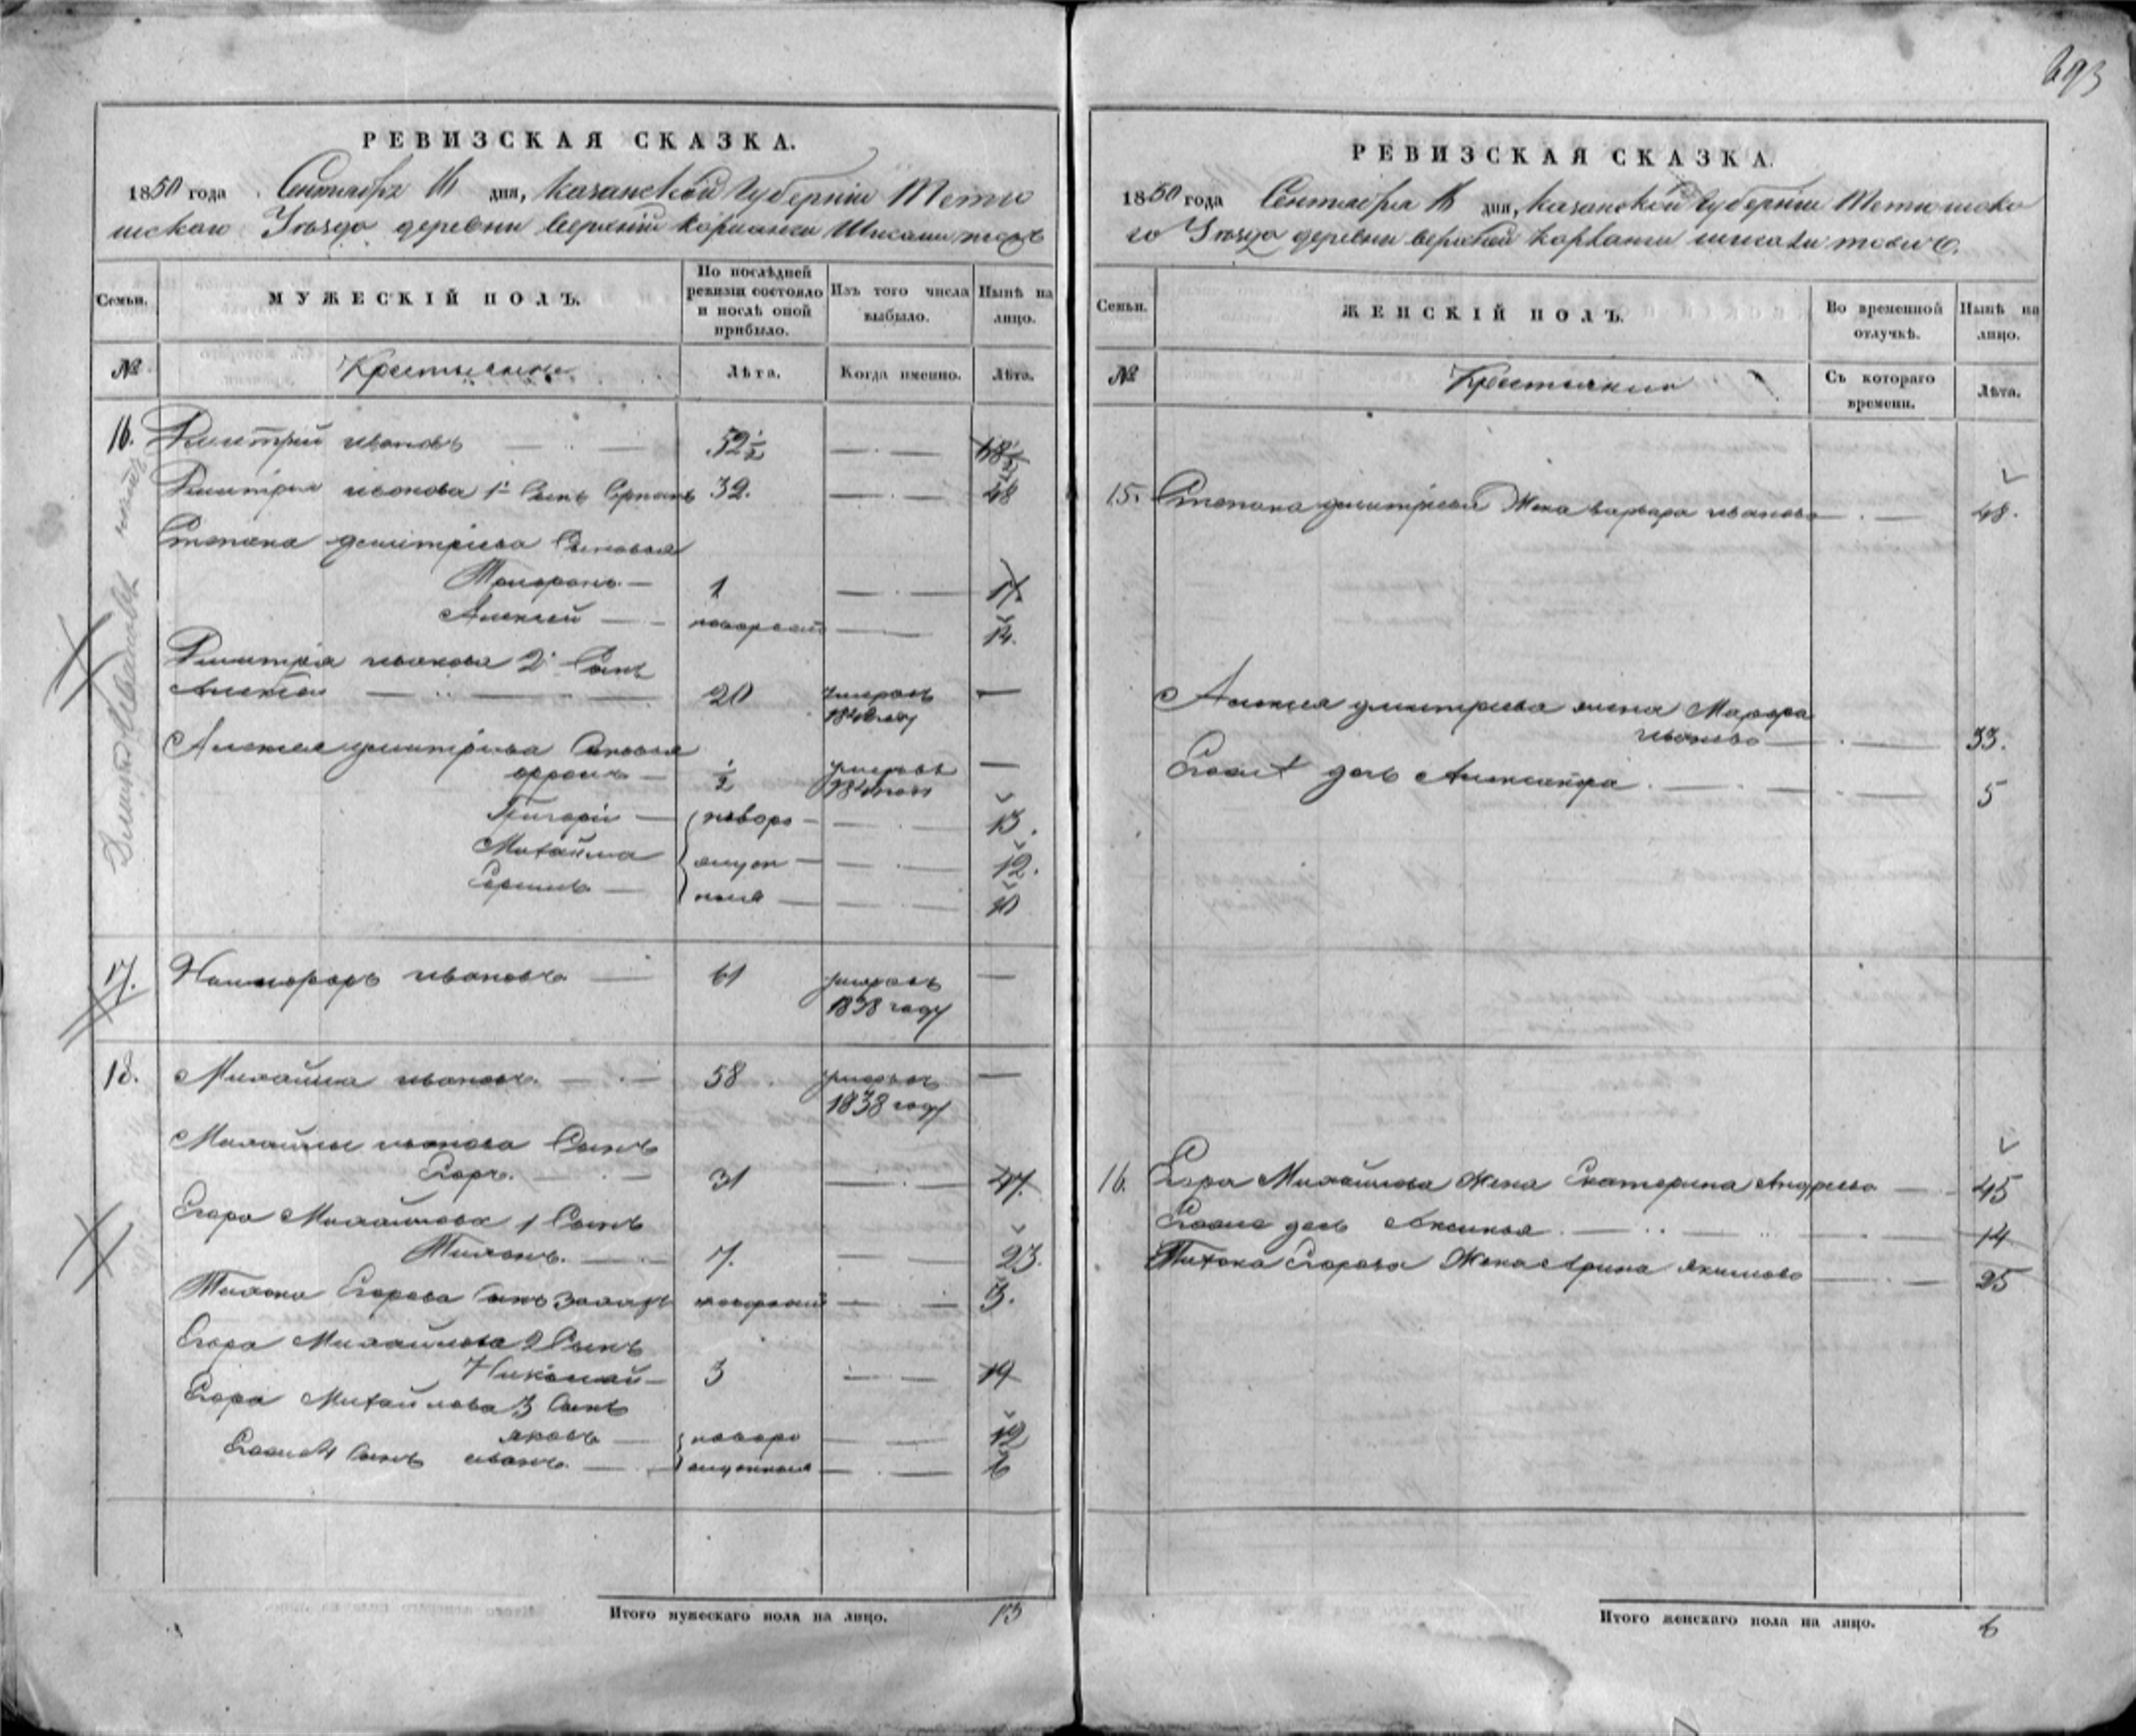 393
РЕВИЗСКАЯ СКАЗКА.
1850 года Сентября дня, Казанской Губернiи Тетю
шскаго Уѣзда деревни
Семьи.
МУЖЕСКIЙ ПОЛЪ.
По послѣдней ревизiи состояло и послѣ оной прибыло.
Изъ того числа выбыло.
Нынѣ на лицо.
№
Крестьяне
Лѣта.
Когда именно.
Лѣта.
16. Дмитрий ивановъ 52 1/2
Дмитрия иванова 1й Сынъ 32. 48
Степана дмитриева Сыновья
1
Алексей 14.
Дмитрия иванова 2й Сынъ
Алексей 20 умеръ —
Алексея дмитриева Сыновья
1/2 —
Григорiй новоро 13.
Михайла жден 12.
ные 10
17. Никифоръ ивановъ 61 умеръ —
1838 году
18. Михайла ивановъ. 58 умеръ —
1838 году
Михайлы иванова Сынъ
Егоръ. 31 47.
Егора Михайлова 1 Сынъ
Тихонъ. 7. 23.
Тихона Егорова Сынъ Захаръ 3.
Егора Михайлова 2 Сынъ
Николай 3 19
Егора Михайлова 3 Сынъ
яковъ новоро 12
Егоже 4 Сынъ иванъ жденные 6
Итого мужескаго пола на лицо. 13
РЕВИЗСКАЯ СКАЗКА.
1850 года Сентября дня, Казанской Губернiи Тетюшска
го Уѣзда деревни
Семьи.
ЖЕНСКIЙ ПОЛЪ.
Во временной отлучкѣ.
Нынѣ на лицо.
№
Крестьянки
Съ котораго времени.
Лѣта.
15. Степана дмитриева Жена варвара иванова 48.
Алексея дмитриева жена Марфа
иванова 33.
Егоже дочь Александра 5
16. Егора Михайлова Жена Екатерина Андреева 45
Егоже дочь Аксинья 14
Тихона Егорова Жена Арина якимова 25
Итого женскаго пола на лицо. 6